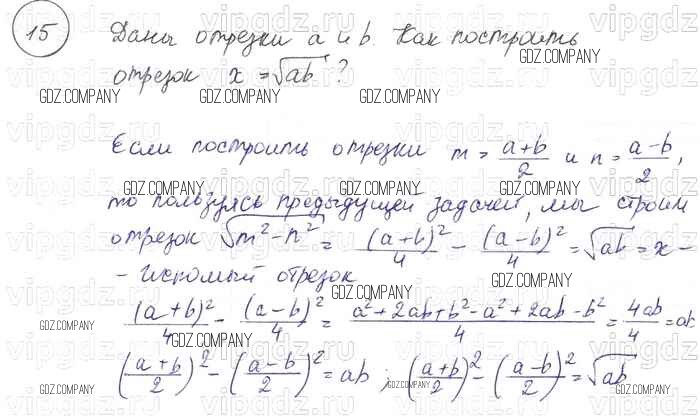 15 Даны отрезки a и b. Как построить
отрезок x = √ab ?
Если построить отрезки m = (a+b)/2 и n = (a-b)/2,
то пользуясь предыдущей задачей, мы строим
отрезок √m²-n² = (a+b)²/4 - (a-b)²/4 = √ab = x -
- искомый отрезок
(a+b)²/4 - (a-b)²/4 = a²+2ab+b²-a²+2ab-b²/4 = 4ab/4 = ab
((a+b)/2)² - ((a-b)/2)² = ab ; ((a+b)/2)² - ((a-b)/2)² = √ab
GDZ.COMPANY
vipgdz.ru